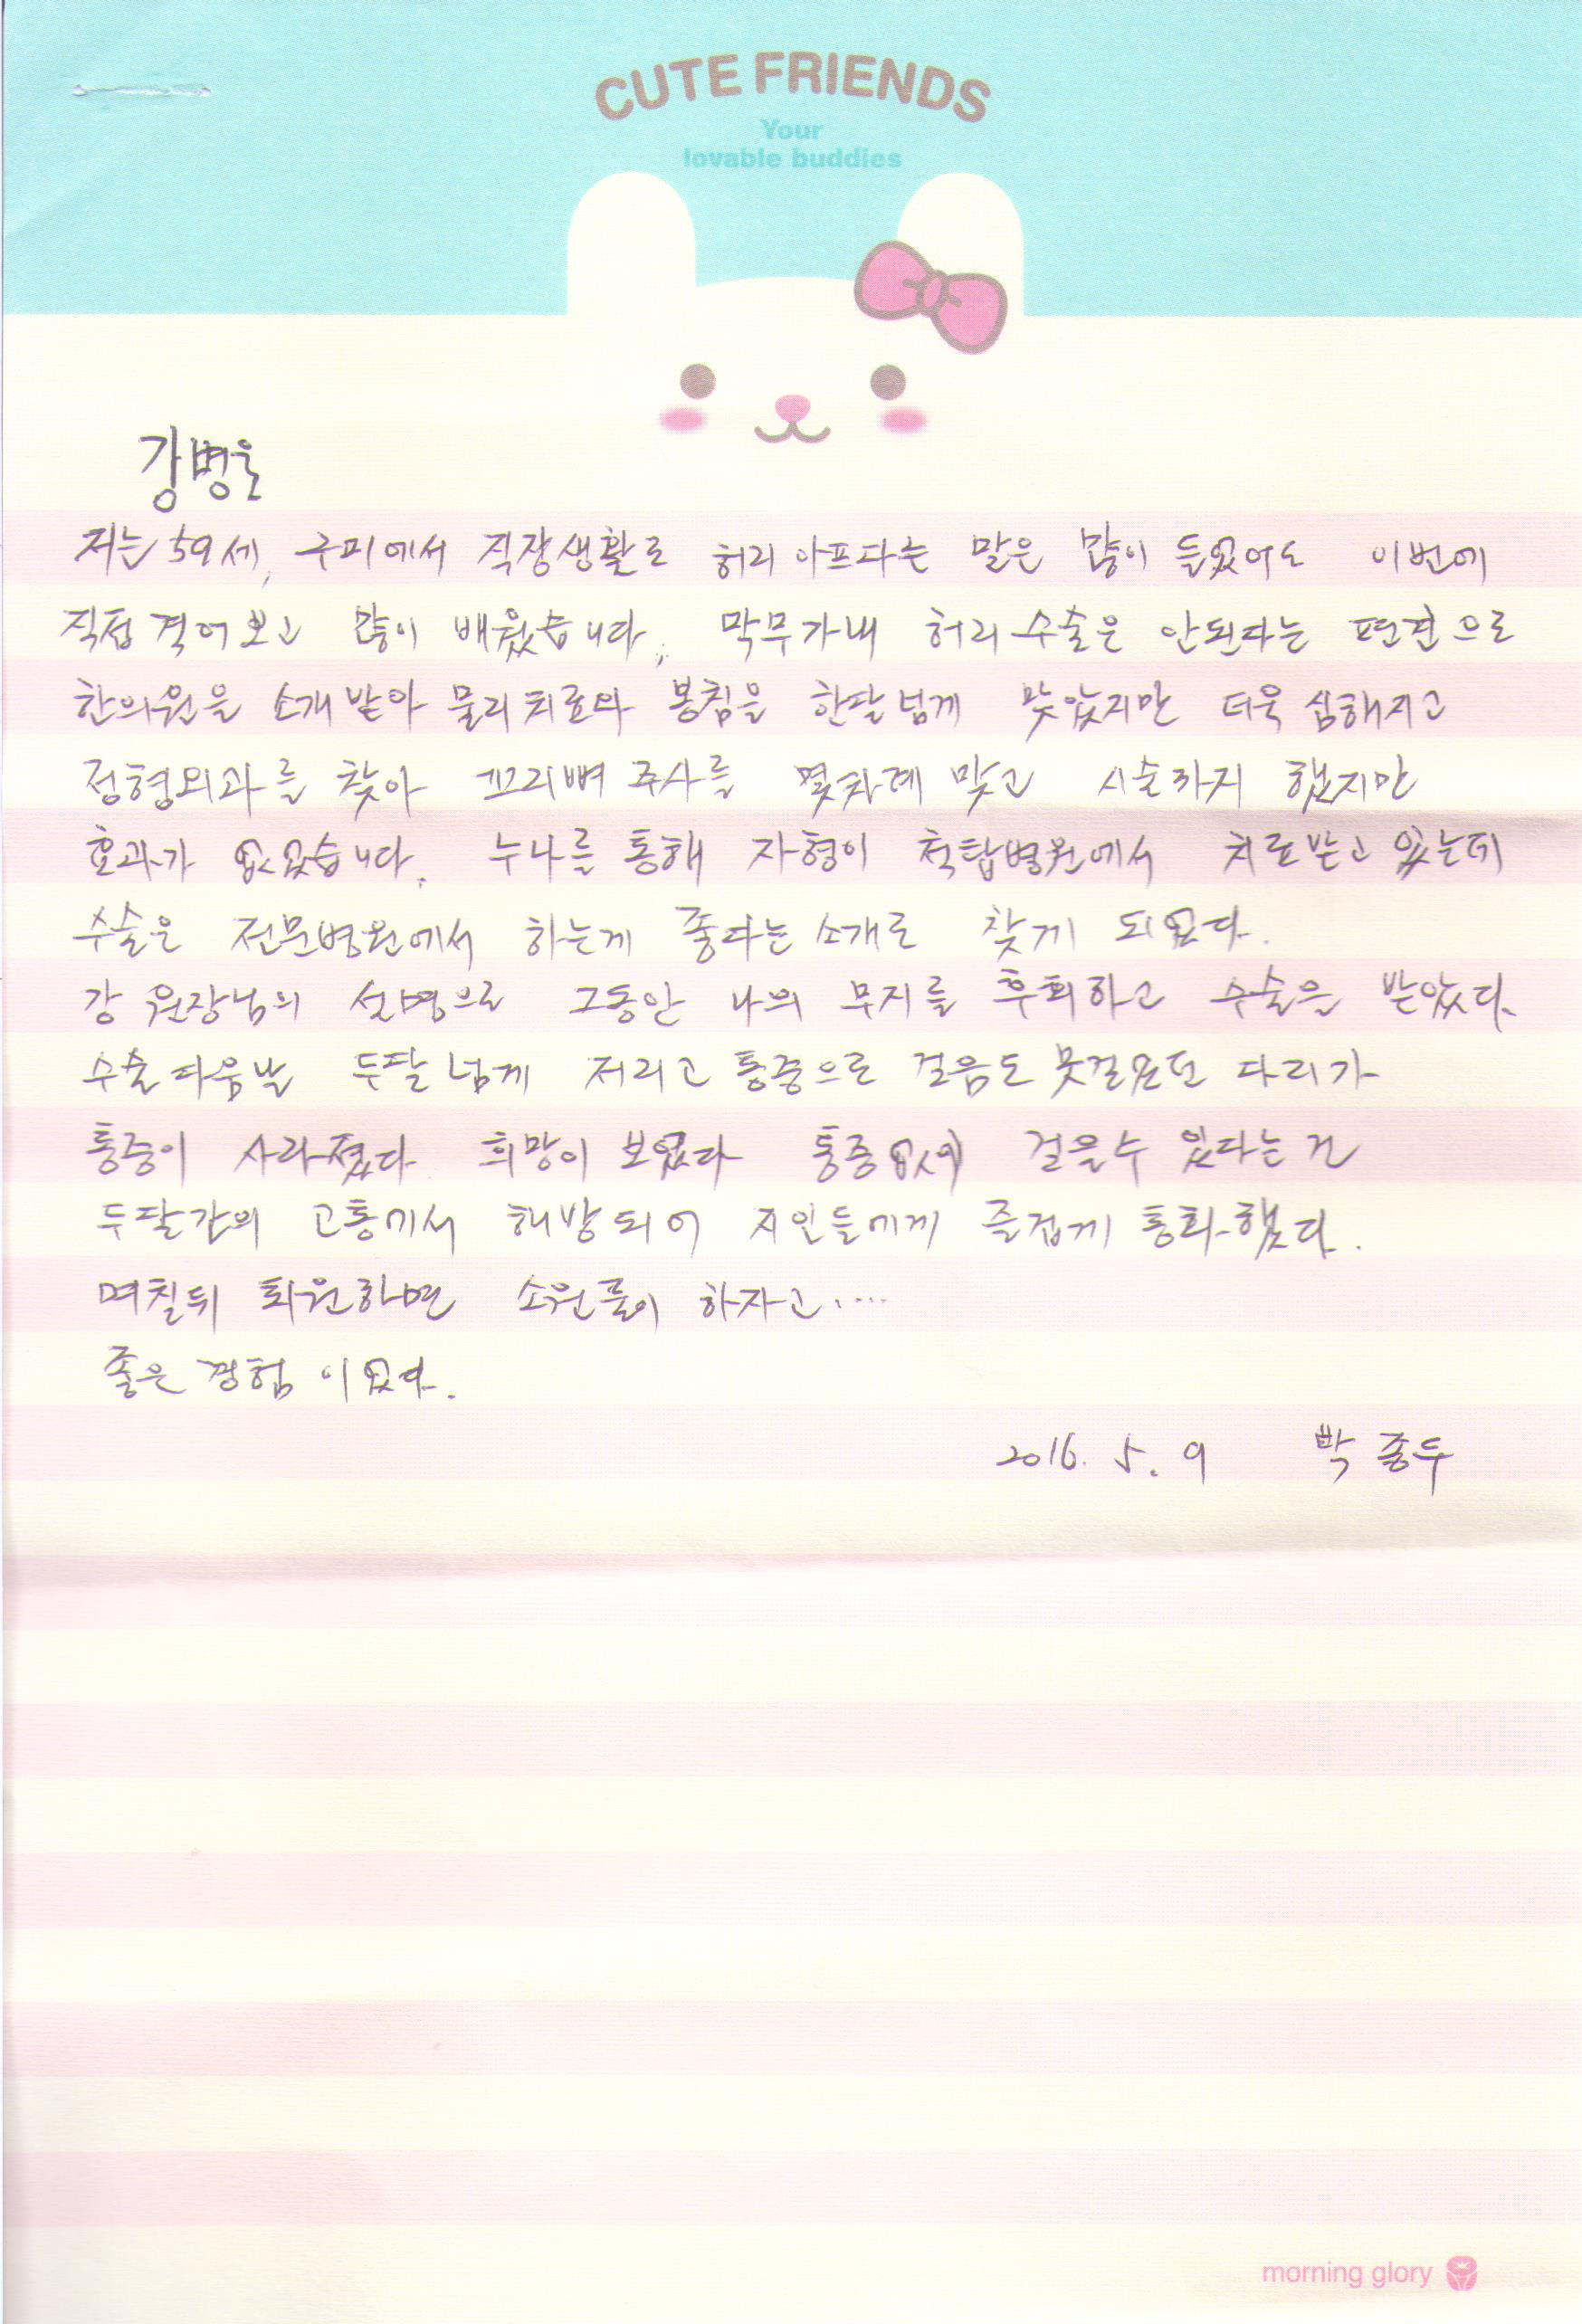 CUTE FRIENDS
Your
lovable buddies
강병운
저는 59세, 구미에서 직장생활로 허리 아프다는 말은 많이 들었어도 이번에
직접 격어보고 많이 배웠습니다. 막무가내 허리 수술은 안된다는 편견으로
한의원을 소개받아 물리치료와 봉침을 한달넘게 맞았지만 더욱 심해지고
정형외과를 찾아 꼬리뼈 주사를 몇차례 맞고 시술까지 했지만
효과가 없었습니다. 누나를 통해 자형이 척탑병원에서 치료받고 있는데
수술은 전문병원에서 하는게 좋다는 소개로 찾게 되었다.
강 원장님의 설명으로 그동안 나의 무지를 후회하고 수술은 받았다.
수술 다음날 두달 넘게 저리고 통증으로 걸음도 못걸었던 다리가
통증이 사라졌다 희망이 보였다 통증없이 걸을수 있다는건
두달간의 고통에서 해방되어 지인들에게 즐겁게 통화했다.
며칠뒤 퇴원하면 소원풀이 하자고....
좋은 경험 이었다.
2016. 5. 9 박종두
morning glory